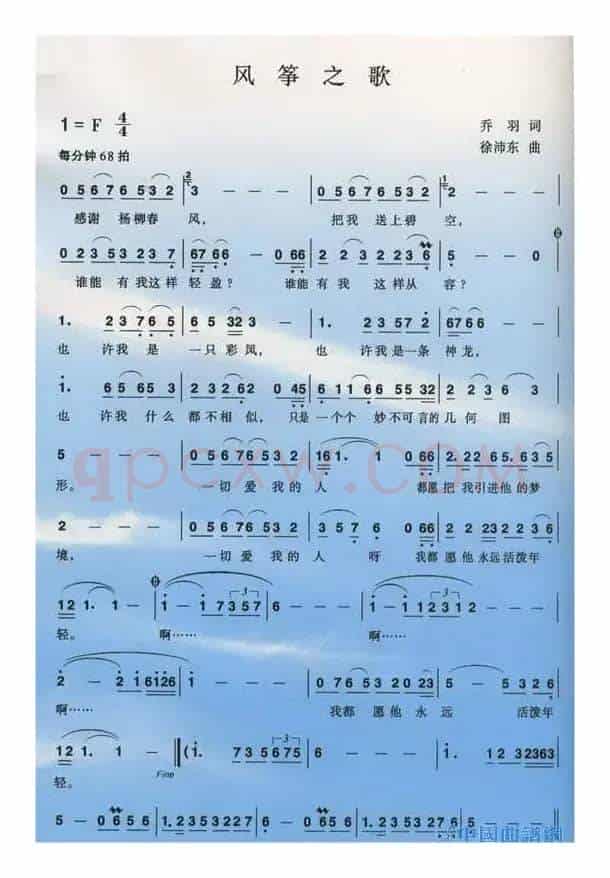 风 筝 之 歌
1 = F 4/4
乔 羽 词
每分钟 68 拍
徐沛东 曲
0 5 6 7 6 5 3 2 | 3 - - - | 0 5 6 7 6 5 3 2 | 2 - - -
感谢 杨柳春 风， 把我 送上碧 空，
0 2 3 5 3 2 3 7 | 67 6 6 - 0 66 | 2 2 3 2 2 3 6 | 5 - - 0
谁能 有我这样 轻盈？ 谁能有我 这样从 容？
1. 2 3 7 6 5 | 6 5 32 3 - | 1. 2 3 5 7 2 | 67 66 - -
也 许我 是 一只 彩凤， 也 许我是一条 神龙，
1. 65 65 3 | 2 32 6 2 0 45 | 6 11 66 55 32 | 2 2 3 6 3
也 许我 什么 都不相似， 只是一个个 妙不可言的几何 图
5 - - - | 0 5 6 7 6 5 3 2 | 16 1. 1 0 66 | 2. 22 65. 3 35
形。 一切 爱我的人 都愿把我引进他的梦
2 - - - | 0 5 6 7 6 5 3 2 | 3 5 7 6 0 66 | 2 2 3 2 3 5 6
境， 一切爱我的人 呀 我都愿他永远活泼年
12 1. 1 - | 1 - 1 7 3 5 7 | 6 - - - | 1 - 1 1 2 3 1 2
轻。 啊…… 啊……
2 - 2 1 6126 | 1 - - - | 0 7 6 5 3 20 23 | 5 - 5 3 2 6
啊…… 我都 愿他永远 活泼年
12 1. 1 - ‖ (1. 7 3 5 6 7 5 | 6 - - - | 1. 12 32363
轻。
Fine
5 - 0 65 6 | 1. 2353227 | 6 - 0 65 6 | 1. 2353 2327 | 6 - - -)
qpcxw.COM
中國曲譜網